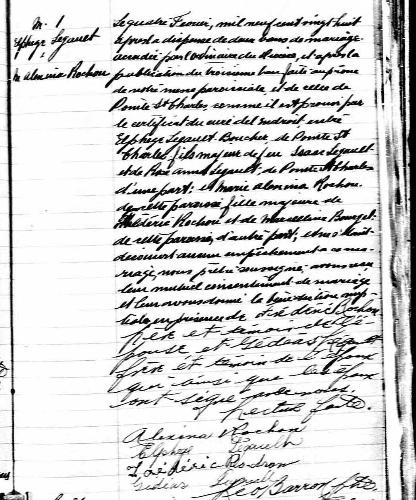 M. 1
Elphège Legault
&
M. Alexina Rochon
Le quatre Février, mil neuf cent vingt huit
après la dispense de deux bans de mariage
accordée par l'ordinaire du diocèse, et après la
publication du troisième ban faite au prône
de notre messe paroissiale, et de celles de
Pointe St Charles, comme il est prouvé par
le certificat du curé del endroit entre
Elphège Legault Boucher, de Pointe St
Charles, fils majeur de feu Isaac Legault
et de Rose Anna Legault, de Pointe St Charles
d'une part; et Marie Alexina Rochon
de cette paroisse, fille majeure de
Rochon et de
de cette paroisse, d'autre part; et ne s'étant
découvert aucun empêchement à ce ma-
riage, nous prêtre soussigné, avons reçu
leur mutuel consentement de mariage
et leur avons donné la bénédiction nup-
tiale en présence de Rochon
père et témoin de l'é-
pouse, et Gédéas Legault
frère et témoin de l'époux
qui ainsi que les époux
ont signé avec nous.
Lecture faite.
Alexina Rochon
Elphège Legault
Rochon
Gédéas Legault
Ptre